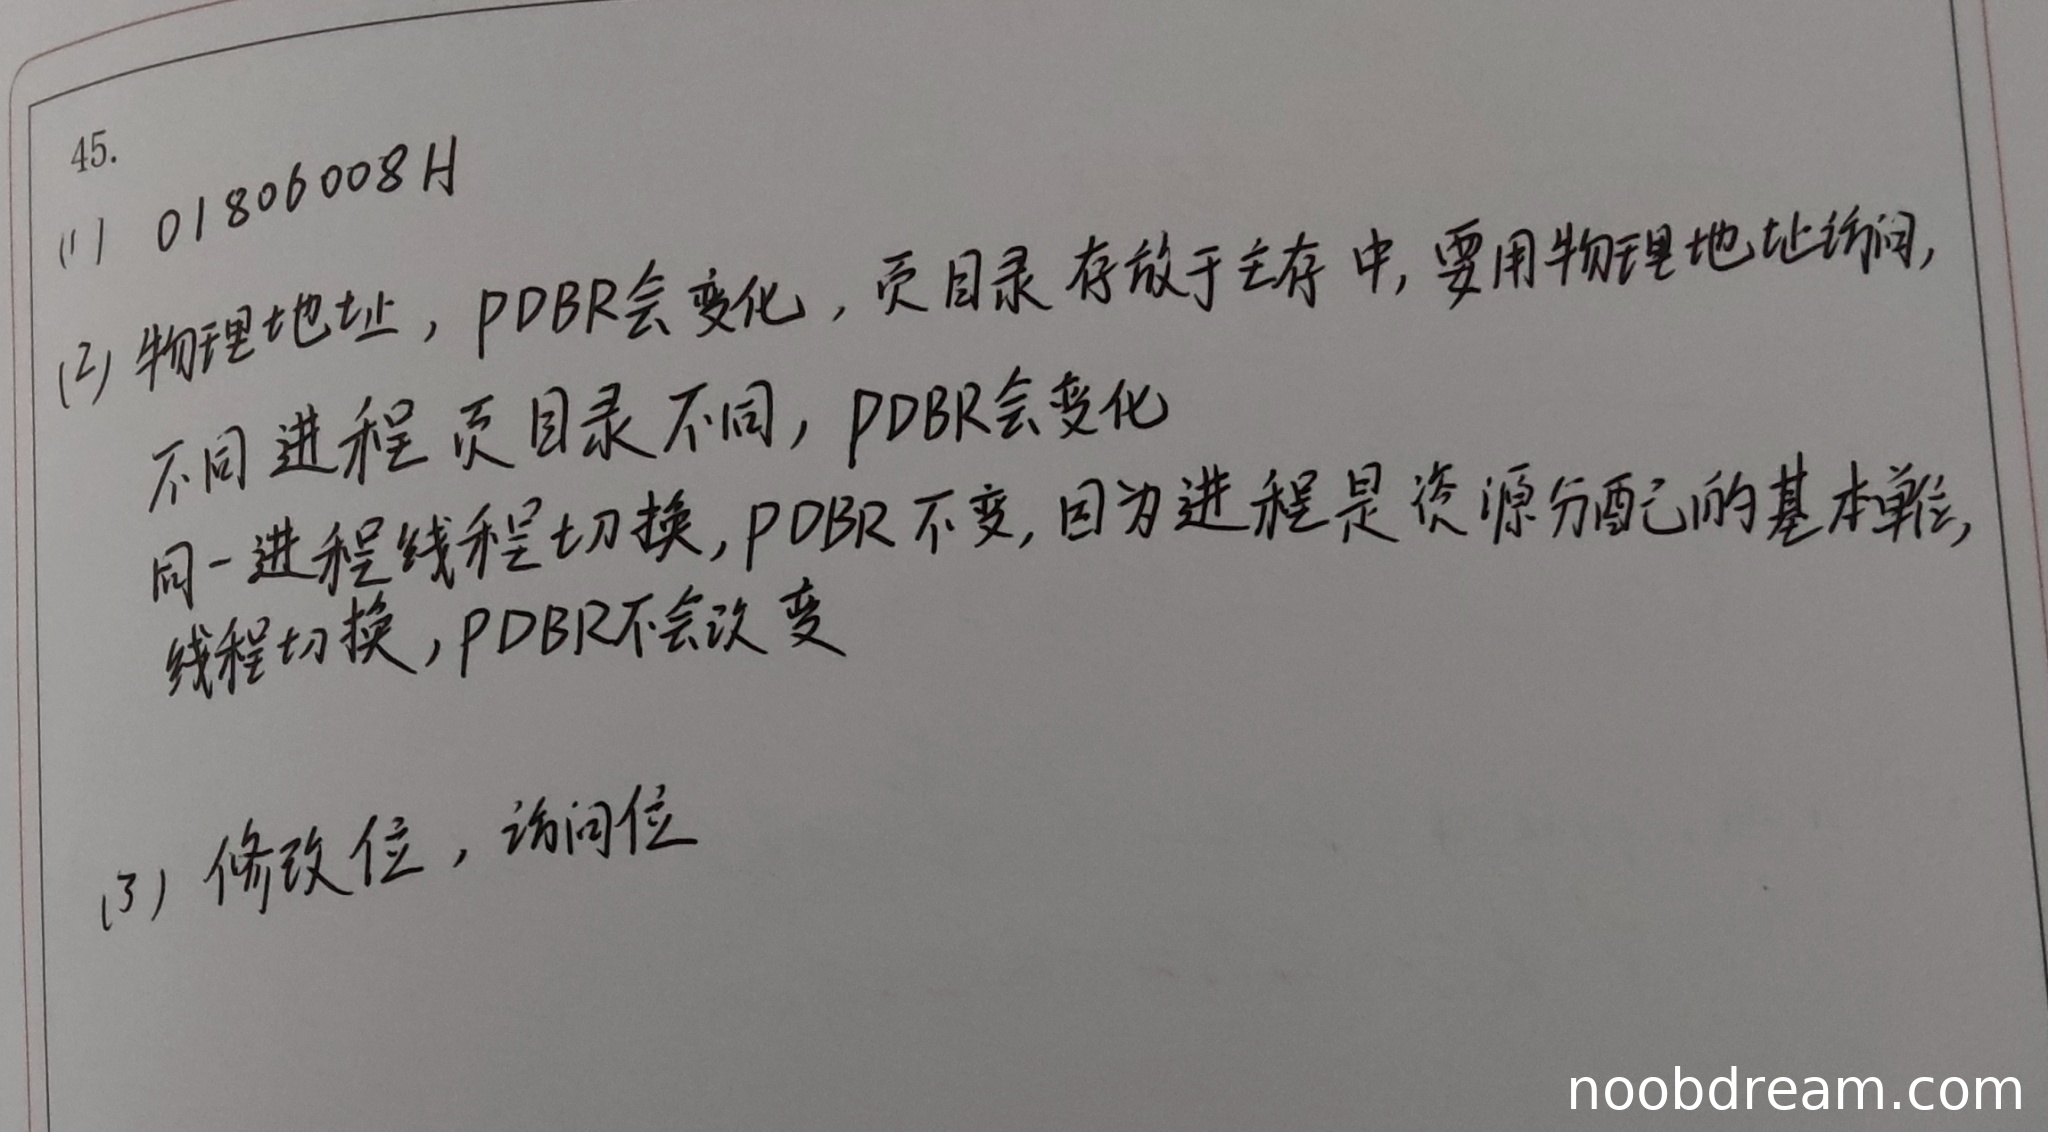 45.
(1) 01806008H
(2) 物理地址，PDBR会变化，页目录存放于主存中，要用物理地址访问，
不同进程页目录不同，PDBR会变化
同一进程线程切换，PDBR不变，因为进程是资源分配的基本单位，
线程切换，PDBR不会改变
(3) 修改位，访问位
noobdream.com